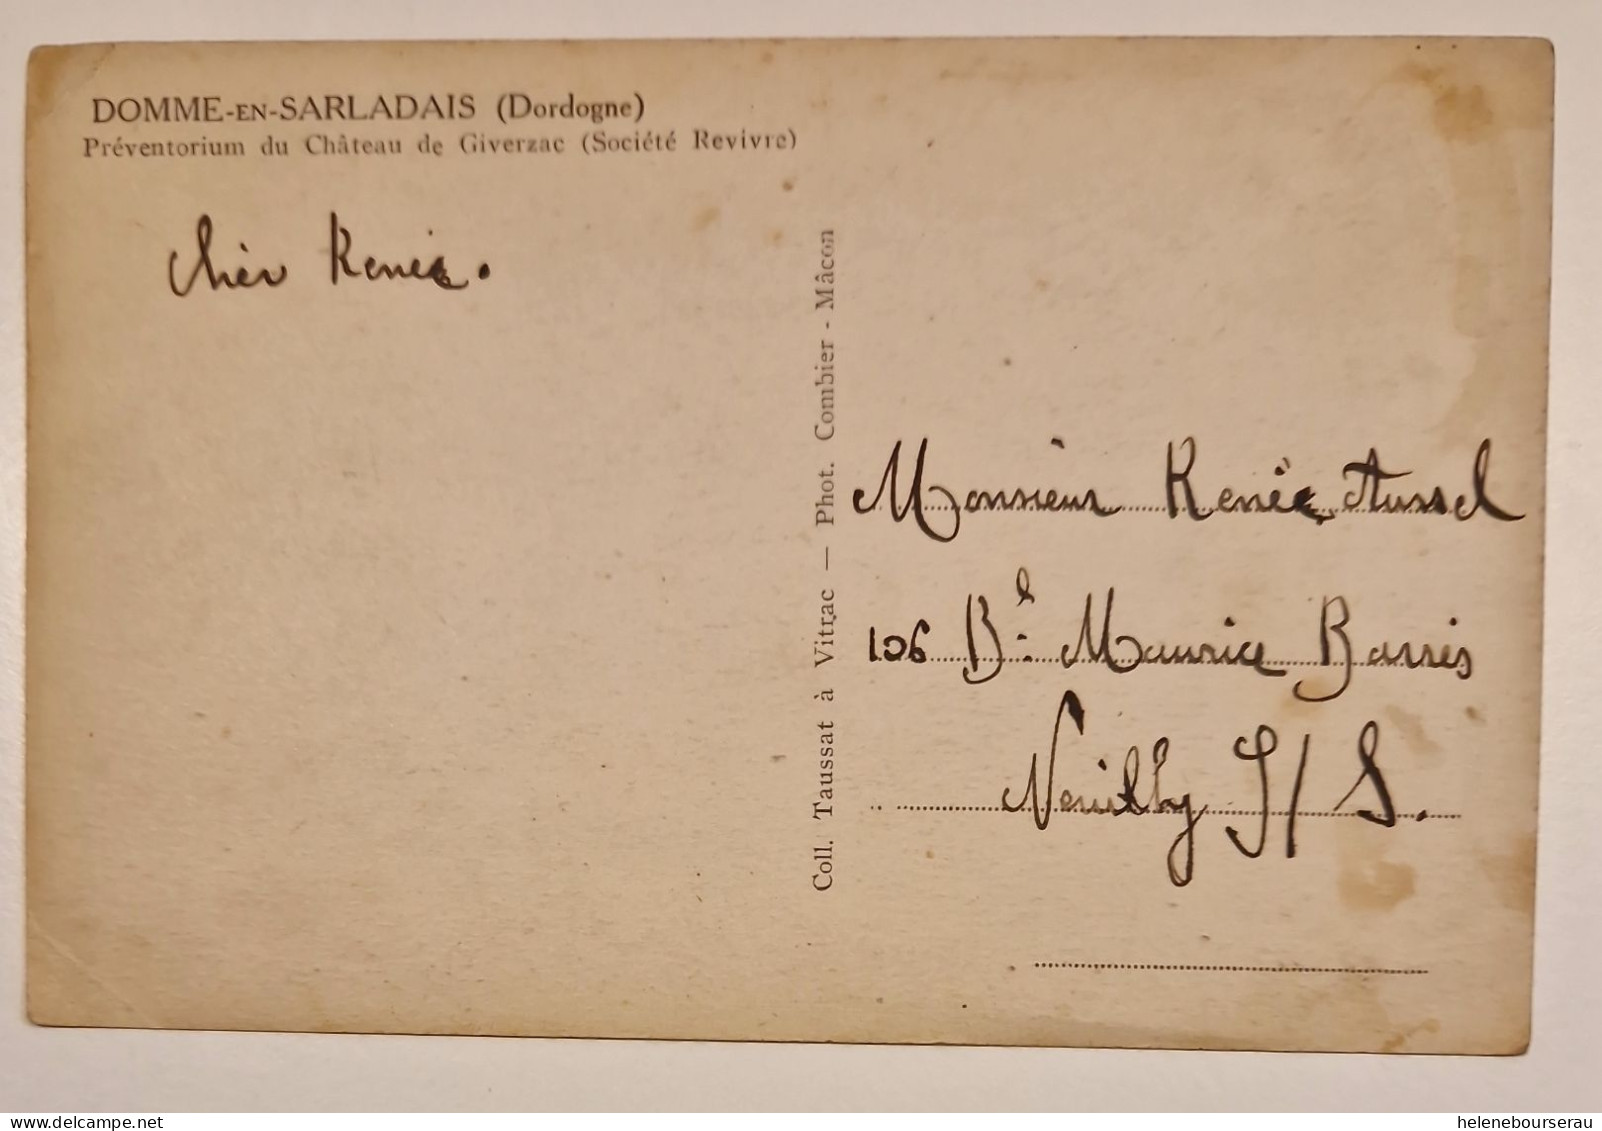 DOMME-EN-SARLADAIS (Dordogne)
Préventorium du Château de Giverzac (Société Revivre)
Chèr Renée.
Coll. Taussat à Vitrac — Phot. Combier - Mâcon
Monsieur Renée Aussel
106 Bd. Maurice Barrès
Neuilly S/S.
helenebourserau